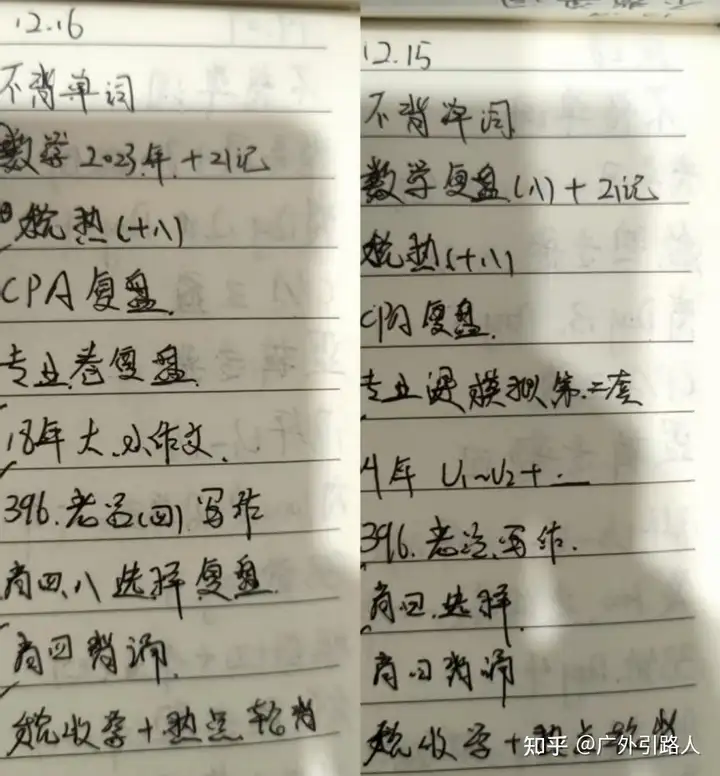 12.16
不背单词
数学 2023年.+21记
税热(十八)
CPA复盘.
专业卷复盘.
18年大.小作文.
396.老吕(四).写作
肖四.八选择复盘.
肖四背诵.
税收学+热点轮背
12.15
不背单词
数学复盘(八)+21记
税热(十八)
CPA复盘.
专业课模拟第二套
年 U1~U2+
396.老吕.写作.
肖四.选择.
肖四背诵
税收学+热点
知乎 @广外引路人